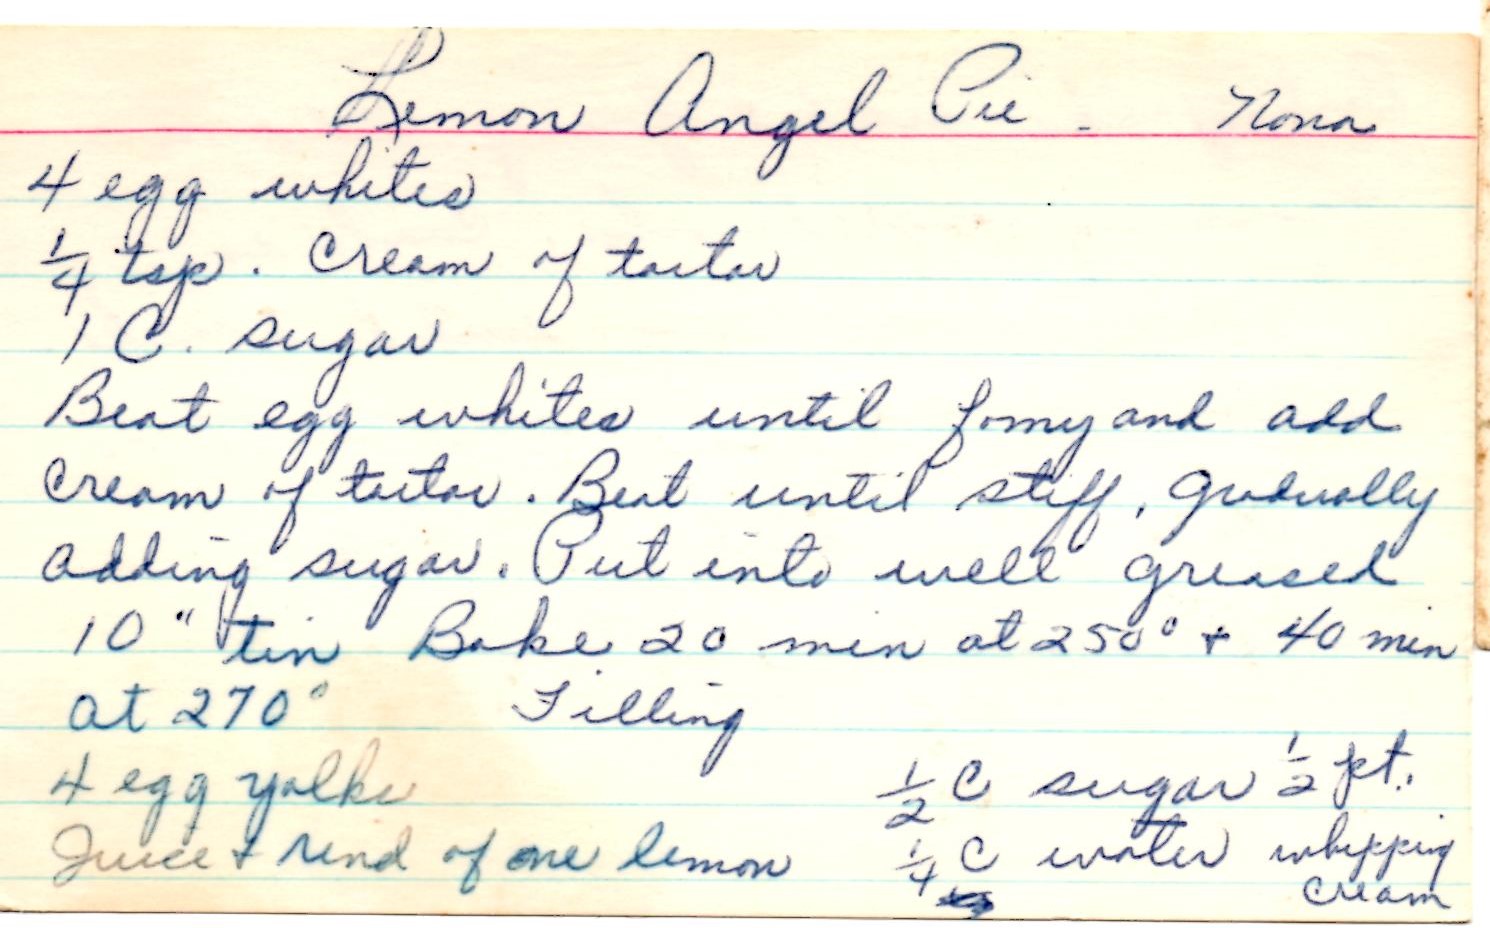 Lemon Angel Pie - Nona
4 egg whites
1/4 tsp. Cream of tartar
1 C. sugar
Beat egg whites until fomy and add
Cream of tartar. Beat until stiff, gradually
adding sugar. Put into well greased
10" tin Bake 20 min at 250° + 40 min
at 270° Filling
4 egg yolks 1/2 C sugar 1/2 pt.
Juice + rind of one lemon 1/4 C water whipping
cream